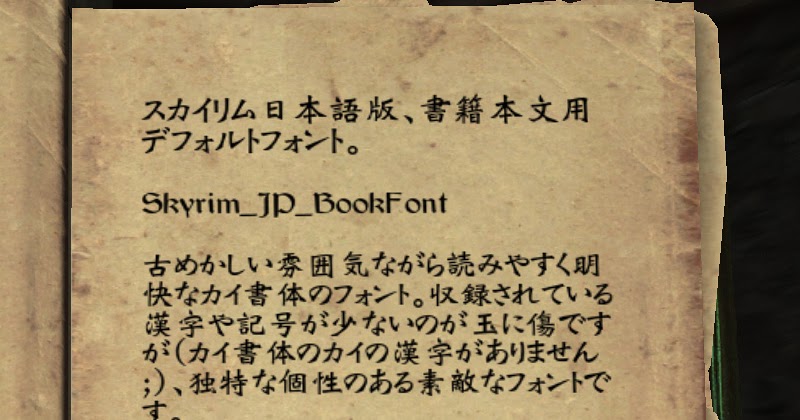 スカイリム日本語版、書籍本文用
デフォルトフォント。
Skyrim_JP_BookFont
古めかしい雰囲気ながら読みやすく明
快なカイ書体のフォント。収録されている
漢字や記号が少ないのが玉に傷です
が(カイ書体のカイの漢字がありません
;)、独特な個性のある素敵なフォントで
す。